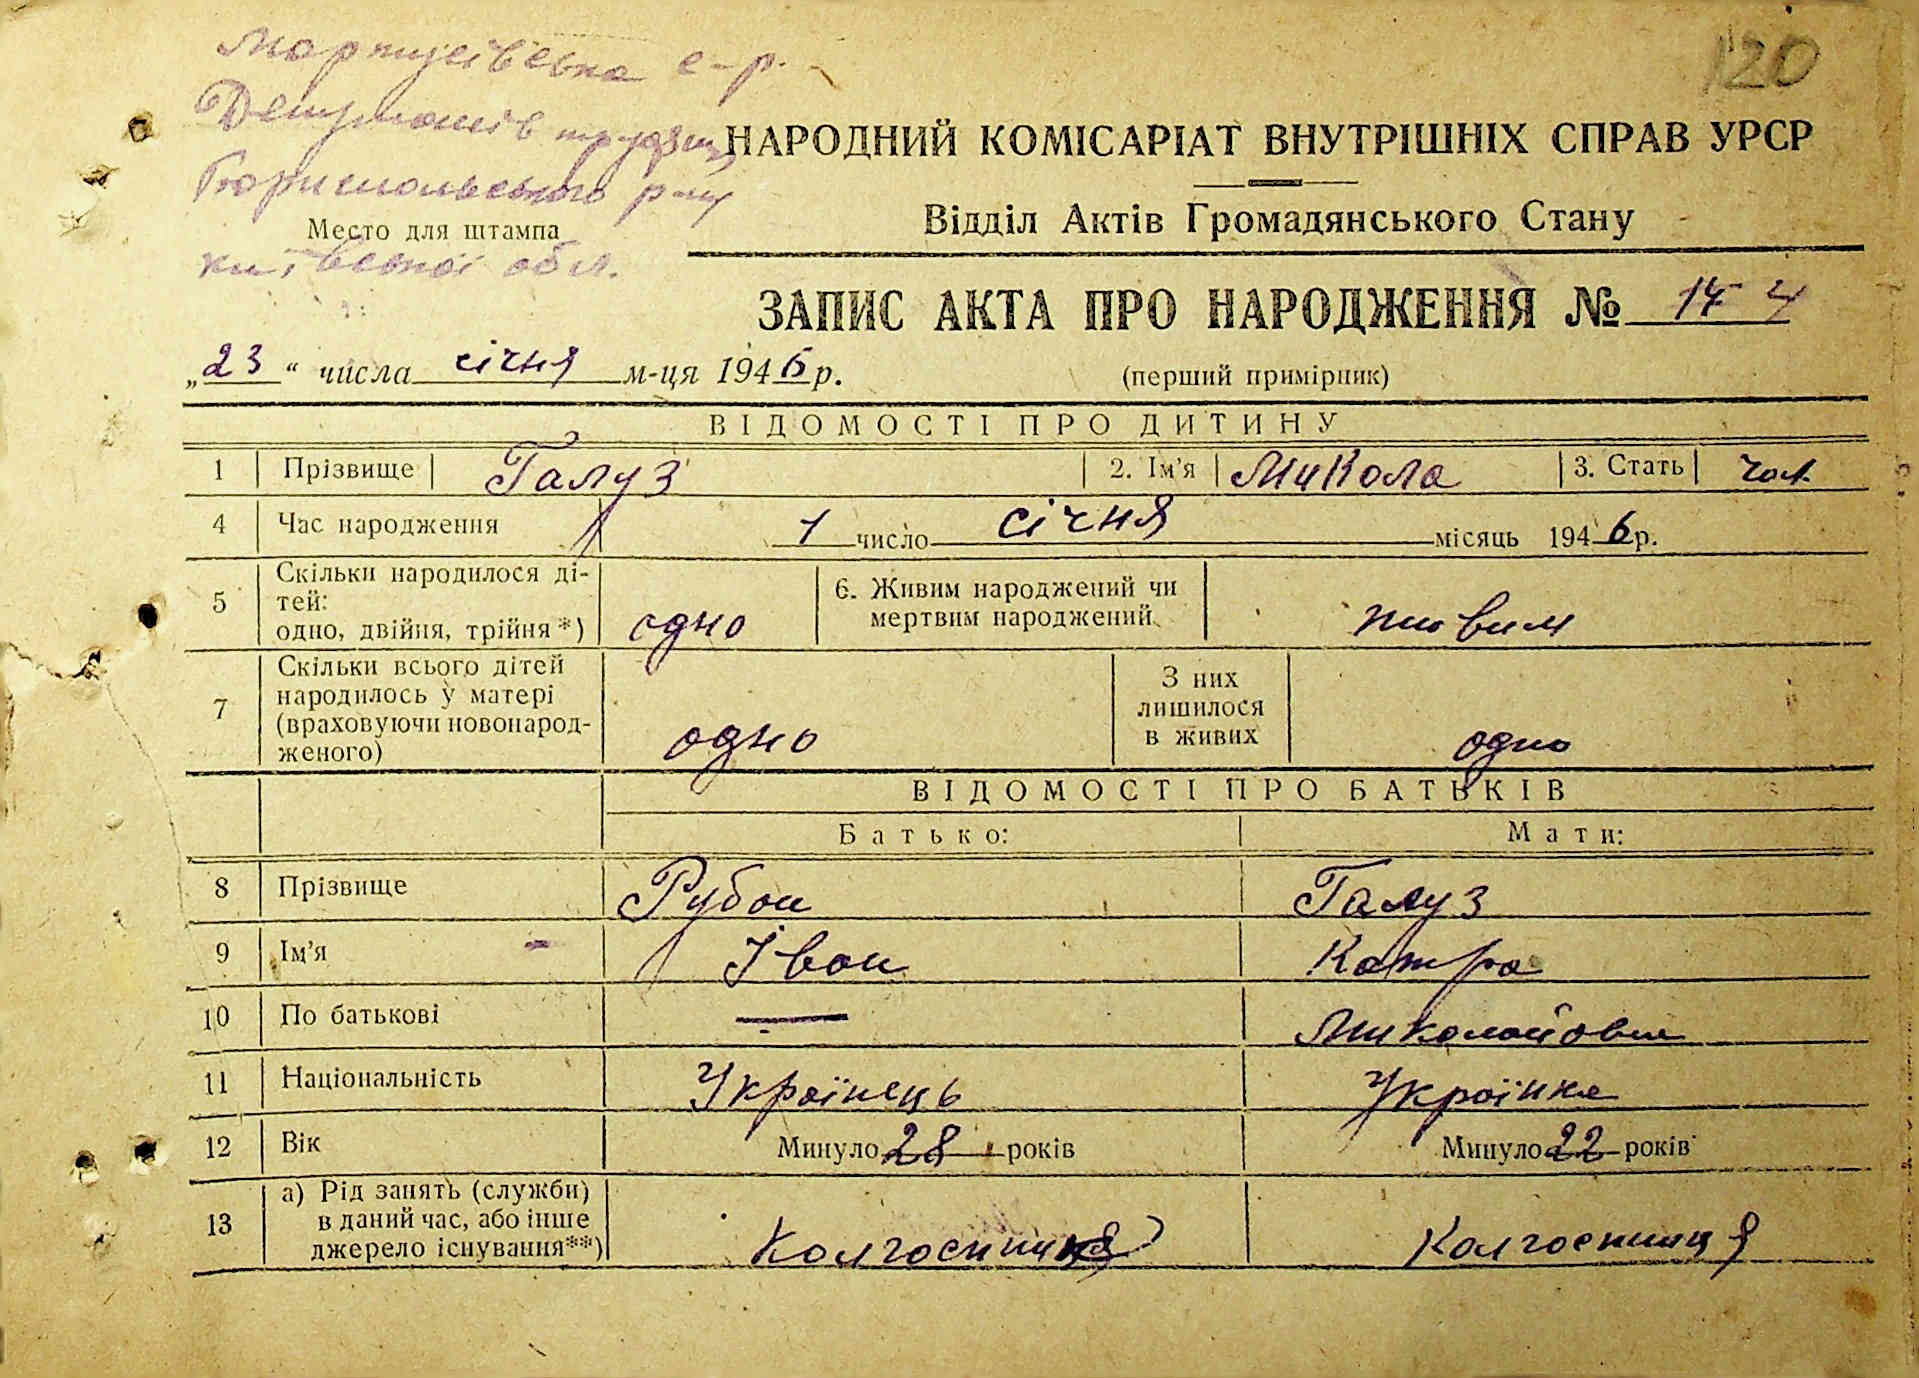 Мартусівська с-р.
120
Депутатів трудящ
НАРОДНИЙ КОМІСАРІАТ ВНУТРІШНІХ СПРАВ УРСР
Бориспольського р-ну
Место для штампа
Відділ Актів Громадянського Стану
київської обл.
ЗАПИС АКТА ПРО НАРОДЖЕННЯ №
„23“ числа січня м-ця 1946 р.
(перший примірник)
ВІДОМОСТІ ПРО ДИТИНУ
1 Прізвище Галуз 2. Ім'я Микола 3. Стать чол.
4 Час народження 1 число січня місяць 1946 р.
5 Скільки народилося ді-
тей:
одно, двійня, трійня*) одно
6. Живим народжений чи
мертвим народжений живим
7 Скільки всього дітей
народилось у матері
(враховуючи новонарод-
женого) одно
З них
лишилося
в живих одно
ВІДОМОСТІ ПРО БАТЬКІВ
Батько: Мати:
8 Прізвище Рубан Галуз
9 Ім'я Іван Катря
10 По батькові — Миколаївна
11 Національність Українець Українка
12 Вік Минуло 28 років Минуло 22 років
13 а) Рід занять (служби)
в даний час, або інше
джерело існування**) Колгоспниця